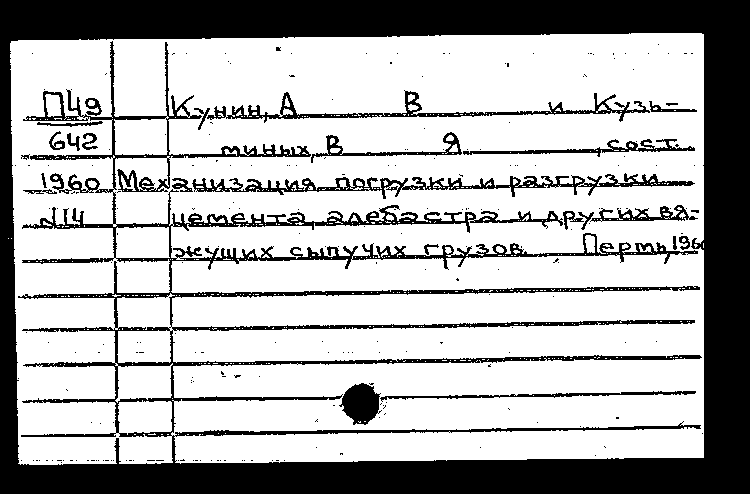 П49 Кунин, А В и Кузь-
642 миных, В Я , сост.
1960 Механизация погрузки и разгрузки
№14 цемента, алебастра и других вя-
жущих сыпучих грузов. Пермь, 1960